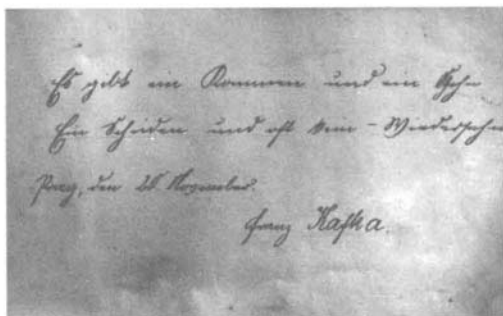 Es gibt ein Kommen und ein Gehn
Ein Scheiden und oft kein - Wiedersehn
Prag, den 20 November.
Franz Kafka.